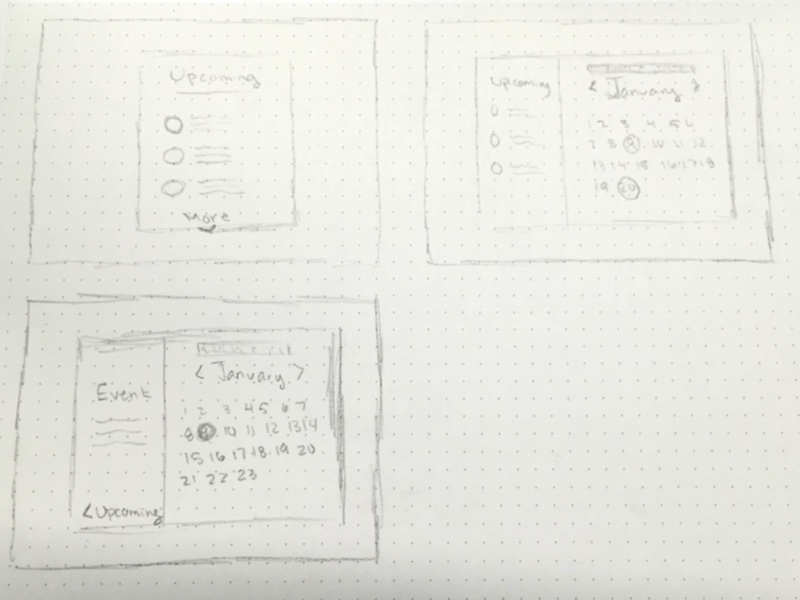 Upcoming
More
Upcoming
< January >
1 2 3 4 5 6
7 8 9 10 11 12
13 14 15 16 17 18
19 20
Event
< Upcoming
< January >
1 2 3 4 5 6 7
8 9 10 11 12 13 14
15 16 17 18 19 20
21 22 23